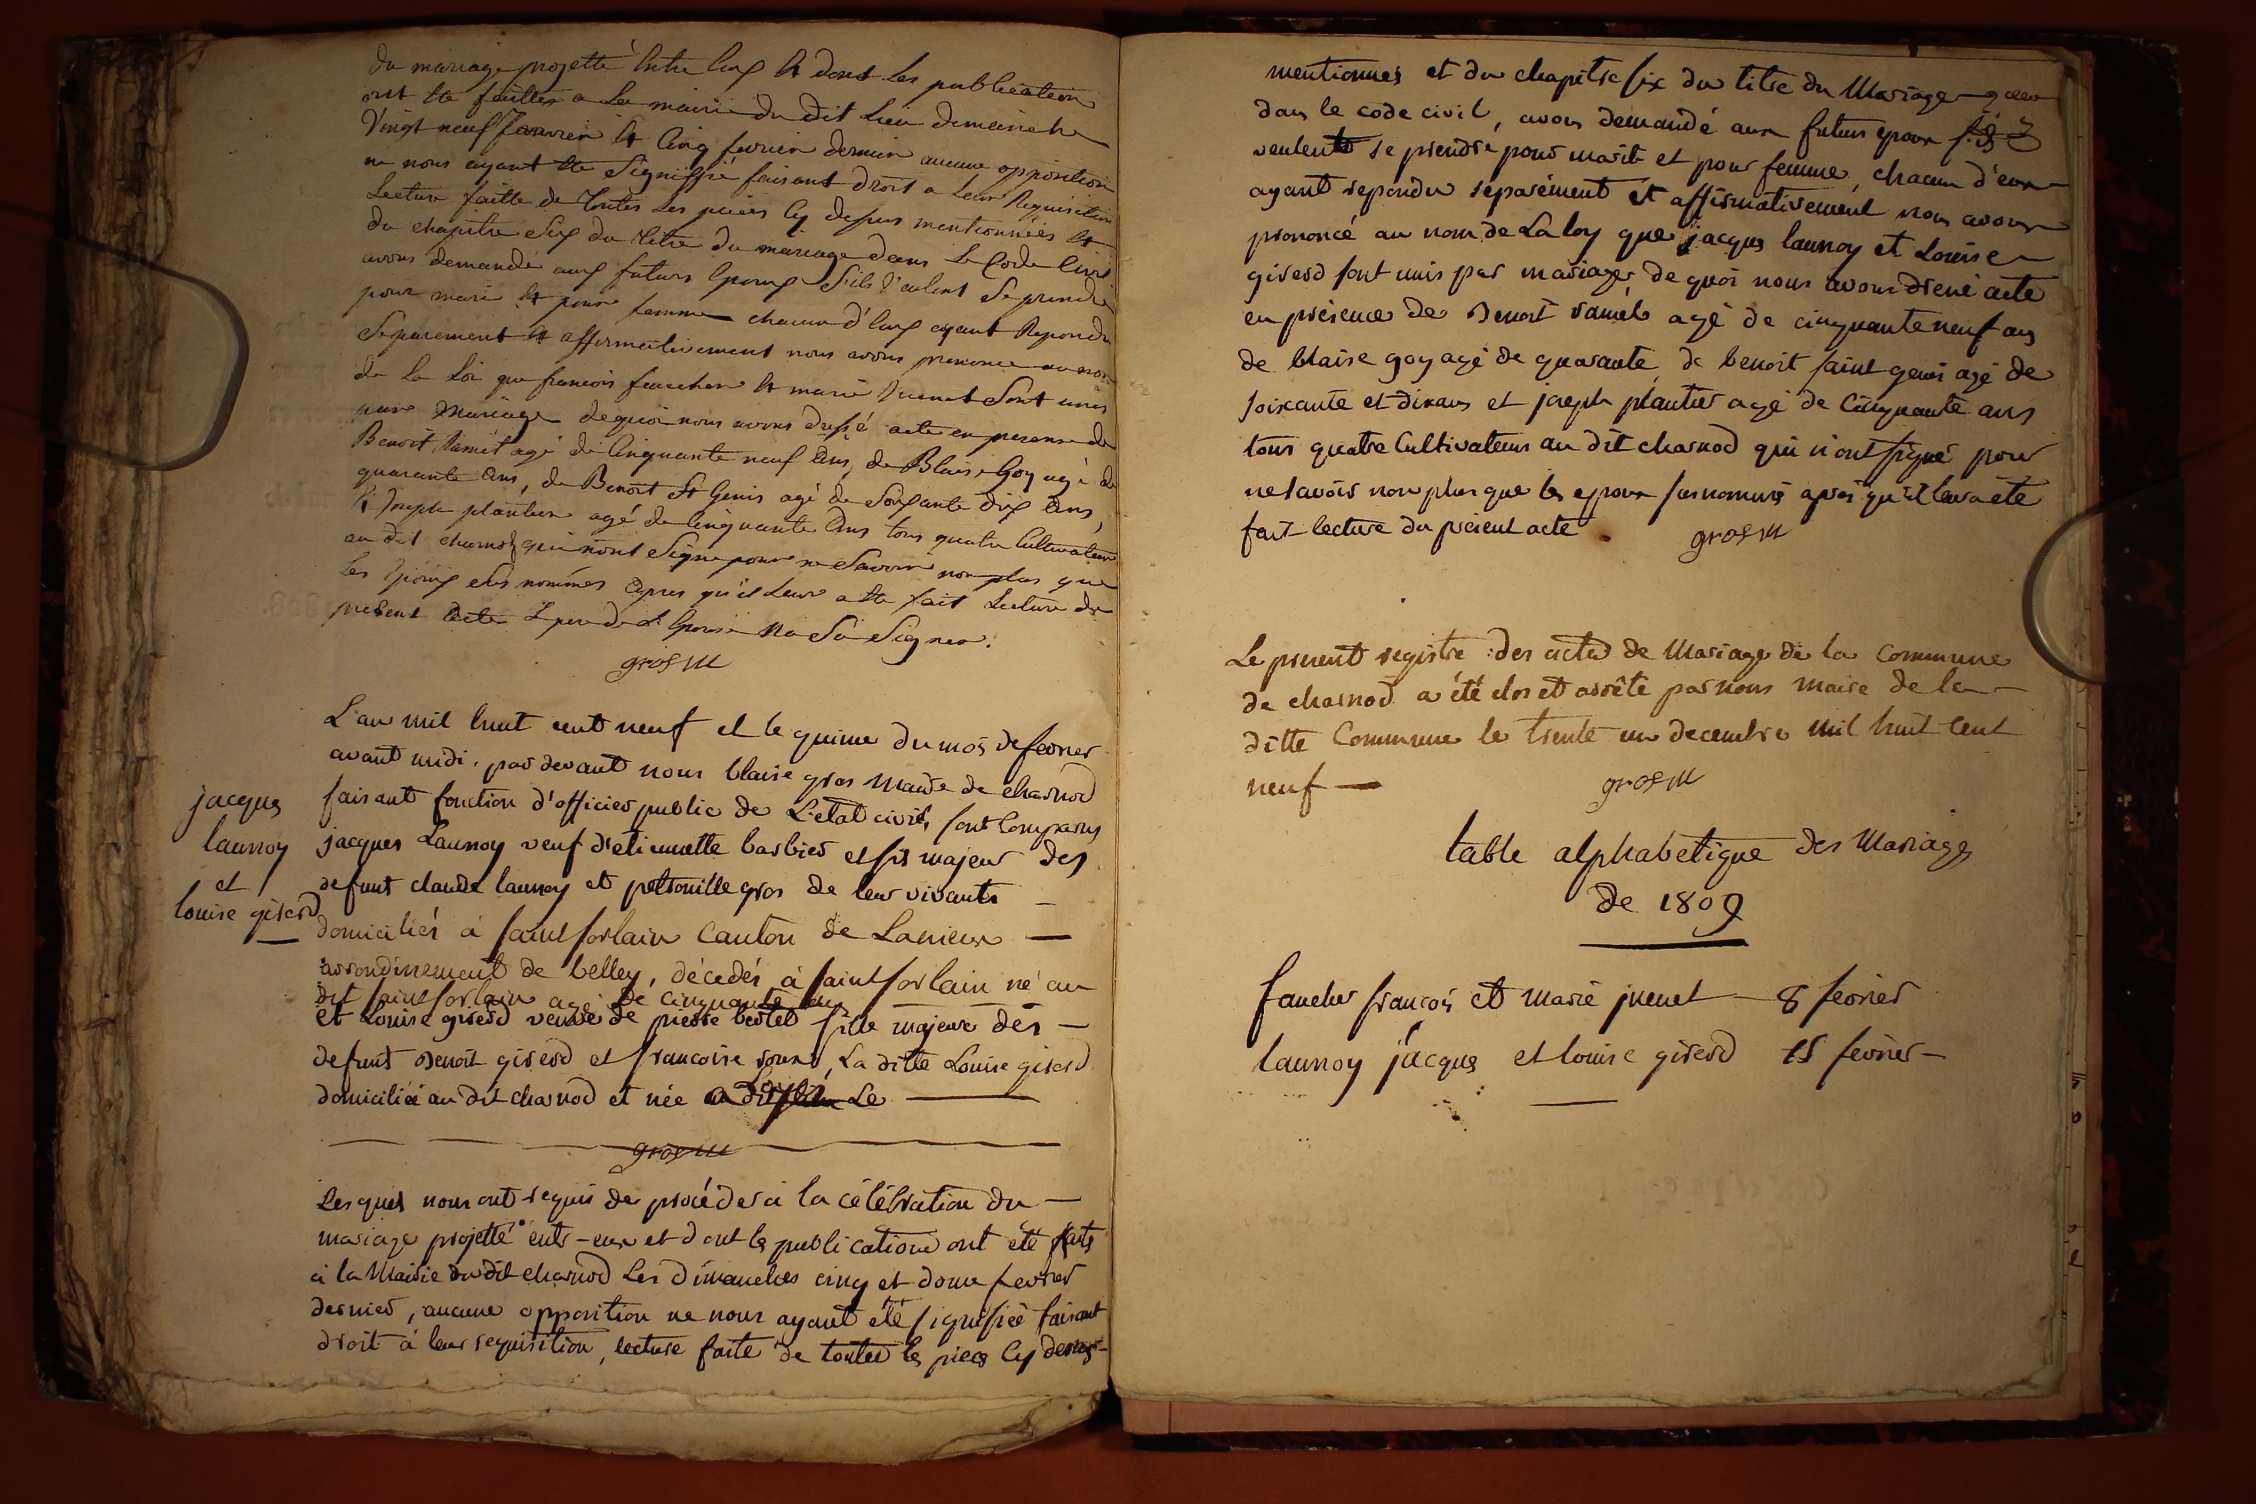 du mariage projetté Entre Eux Et dont les publication
ont Ete faittes a La mairie du dit Lieu dimanche
Vingt neuf Janvier Et Cinq fevrier dernier aucune opposition
ne nous ayant Ete Signiffié faisant droit a Leur Requisition
Lecture faitte de Toutes Les pieces Cy dessus mentionnées Et
du chapitre Six du Titre du mariage dans Le Code Civil
avons demandé aux futurs Epoux S'ils Veulent Se prendre
pour mari Et pour femme chacun d'Eux ayant Repondu
Separement Et affirmativement nous avons prononcé au nom
de La Loi que francois faucher Et marie Juenet Sont unis
par Mariage dequoi nous avons dressé acte en presence de
Benoit Ramét agé de Cinquante neuf Ans, de Blaise Goy agé de
quarante Ans, de Benoit St Genis agé de Soixante dix Ans,
Et Joseph plantier agé de Cinquante Ans tous quatre Cultivateurs
au dit charnod qui n'ont Signé pour ne Savoir non plus que
Les Epoux Sus nommés Apres qu'il Leur a Ete fait Lecture du
present Acte Le pere de L'Epouse Na Su Signer.
gros m
L'an mil huit cent neuf et le quinze du mois de fevrier
avant midi, par devant nous blaise gros Maire de charnod
faisant fonction d'officier public de L'etat civil, sont Comparus
jacques Launoy veuf d'etiennette barbier et fils majeur des
defunt claude launoy et petronille gros de leur vivants
domiciliés à saint sorlain Canton de Lanieux
arrondissement de belley, décedés à saint sorlain né au
dit saint sorlain agé de cinquante ans
et Louise giserd veuve de pierre bertet fille majeure des
defunt Benoit giserd et francoise , La ditte Louise giserd
domiciliée au dit charnod et née Le
gros m
jacques
launoy
et
louise giserd
Lesquels nous ont requis de procéder à la célébration du
mariage projetté entr-eux et dont les publications ont été faits
à la Mairie du dit charnod Les dimanches cinq et douze fevrier
dernier, aucune opposition ne nous ayant été signifiée faisant
droit à leur requisition, lecture faite de toutes les pieces Cy dessus
mentionnés et du chapitre six du titre du Mariage
dans le code civil, avons demandé aux futurs epoux
veulent se prendre pour marit et pour femme, chacun d'eux
ayant repondu separément et affirmativement nous avons
prononcé au nom de La loy que jacques launoy et Louise
giserd sont unis par mariage, de quoi nous avons dressé acte
en présence de Benoit ramét agé de cinquante neuf ans
de blaise goy agé de quarante, de benoit saint genis agé de
soixante et dix ans et joseph plantier agé de Cinquante ans
tous quatre Cultivateurs au dit charnod qui n'ont signé pour
ne savoir non plus que les epoux susnommés après qu'il leur a été
fait lecture du présent acte
gros m
Le present registre des actes de Mariage de la Commune
de charnod a été clos et arrêté par nous Maire de la
ditte Commune le trente un decembre mil huit Cent
neuf
gros m
table alphabetique des Mariages
de 1809
faucher francois et marie juenet - 8 fevrier
launoy jacques et louise giserd 15 fevrier